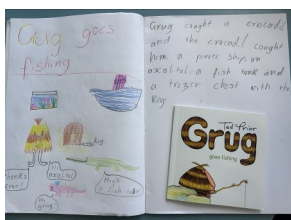 Grug goes
fishing
Grug cought a crocodil
and the crocodil cought
from a pirate ship, an
axolitol, a fish tank and
a trezer chest with the
key
Ted Prior
Grug
goes fishing